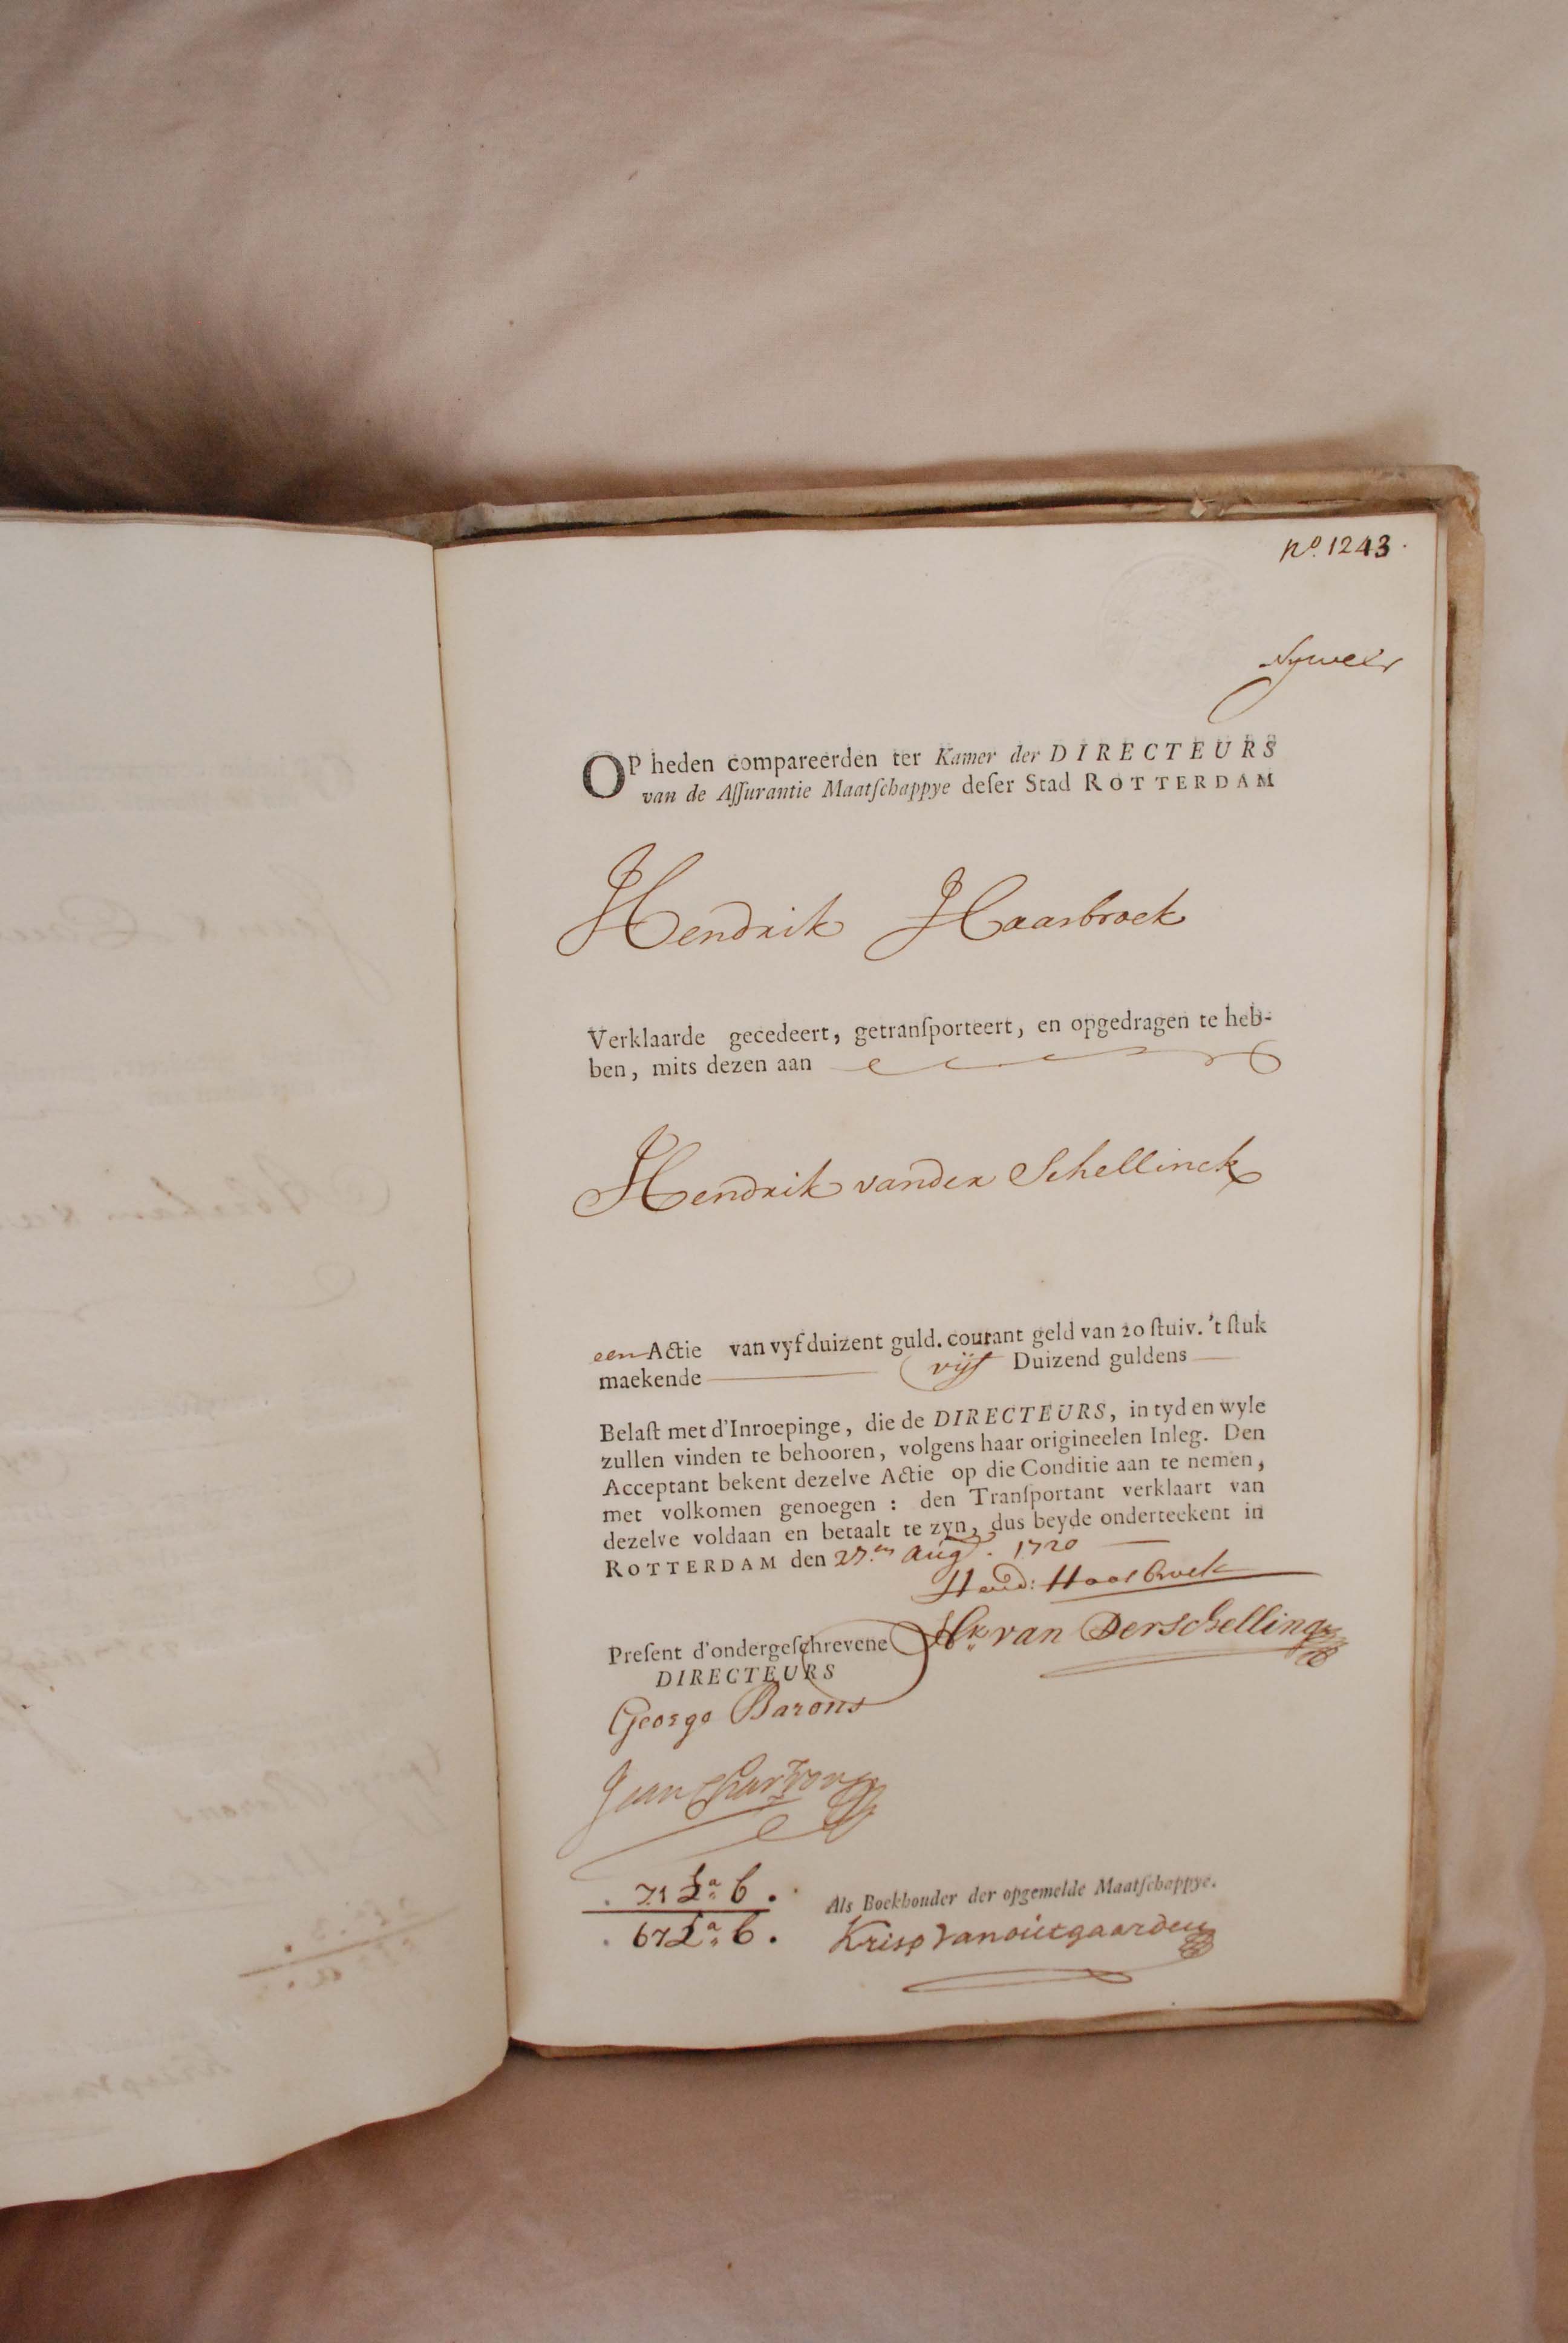 No. 1243.
OP heden compareerden ter Kamer der DIRECTEURS
van de Aſſurantie Maatſchappye deſer Stad ROTTERDAM
Hendrik Haasbroek
Verklaarde gecedeert, getranſporteert, en opgedragen te heb-
ben, mits dezen aan
Hendrik vander Schellinck
een Actie van vyf duizent guld. courant geld van 20 ſtuiv. 't ſtuk
maekende vijf Duizend guldens
Belaſt met d'Inroepinge, die de DIRECTEURS, in tyd en wyle
zullen vinden te behooren, volgens haar origineelen Inleg. Den
Acceptant bekent dezelve Actie op die Conditie aan te nemen,
met volkomen genoegen : den Tranſportant verklaart van
dezelve voldaan en betaalt te zyn, dus beyde onderteekent in
ROTTERDAM den 27.en Aug. 1720
Hend: Haasbroek
Hk van Derschelling
Preſent d'ondergeſchrevene
DIRECTEURS
George Barons
Jean
. 71 La b .
. 67 La b .
Als Boekhouder der opgemelde Maatſchappye.
Krisp Vanoutgaarden